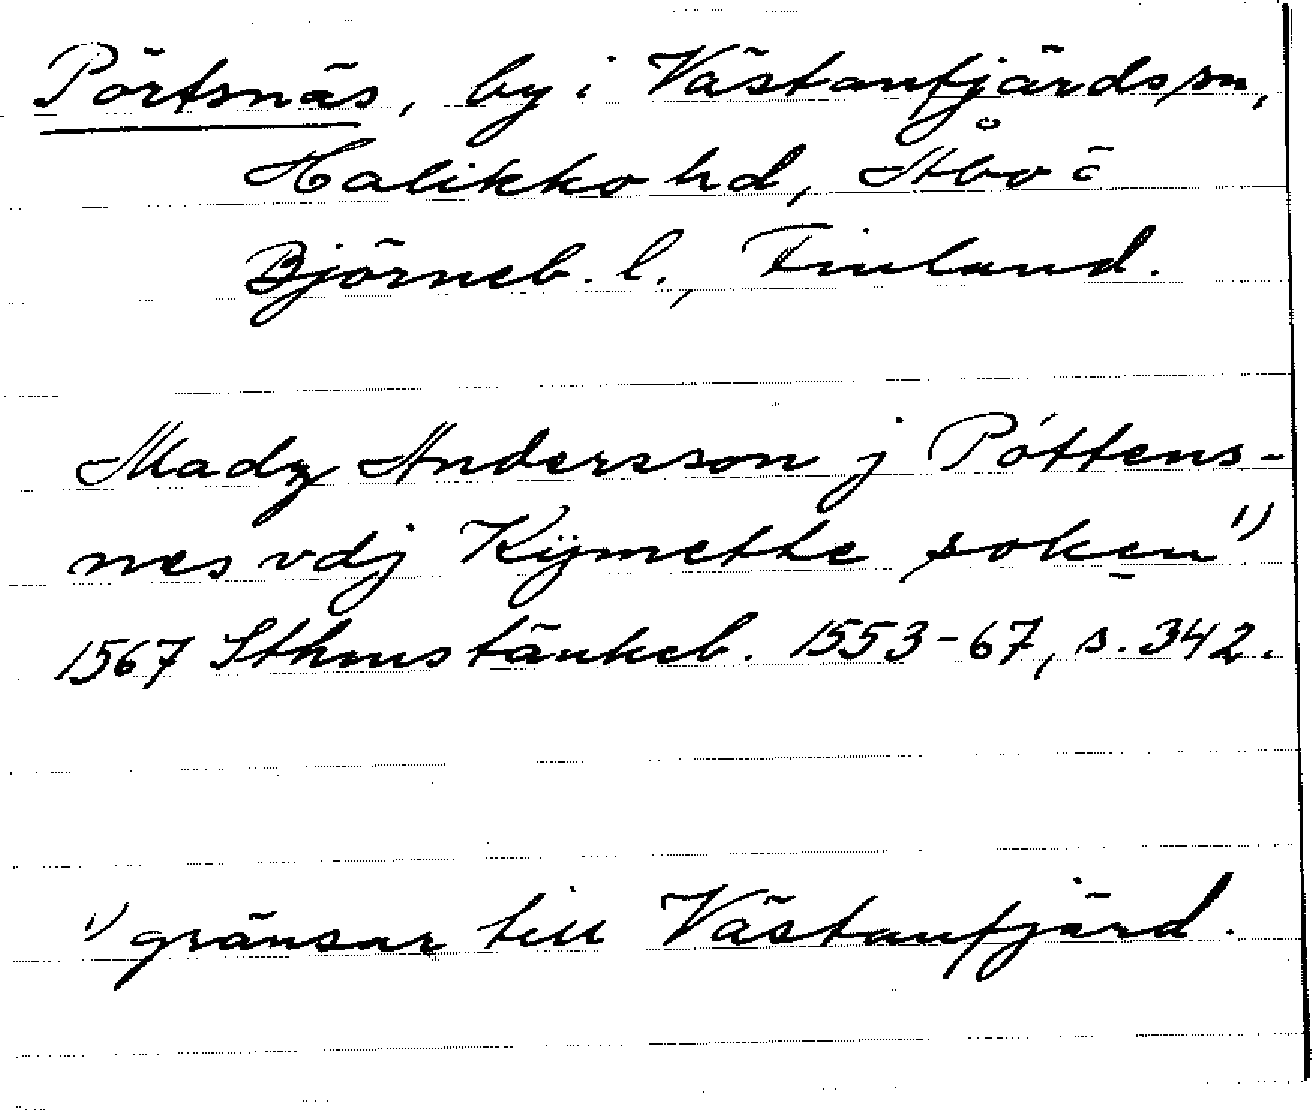 Pörtsnäs, by i Västanfjärds sn,
Halikko hd, Åbo ö
Björneb. l., Finland.
Madz Andersson j Póttens-
nes vdj Kijmette soken 1)
1567 Sthms tänkeb. 1553-67, s. 342.
1) gränsar till Västanfjärd.